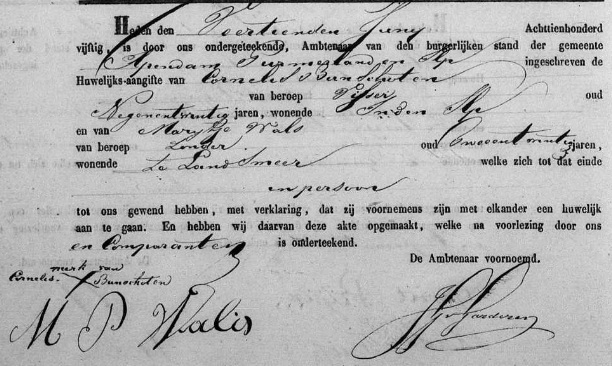 Heden den Veertienden Juny Achttienhonderd
vijftig, is door ons ondergeteekende, Ambtenaar van den burgerlijken stand der gemeente
Ilpendam Purmerland en Ilp ingeschreven de
Huwelijks-aangifte van Cornelis Bunschoten
van beroep Visser oud
Negenentwintig jaren, wonende In den Ilp
en van Marytje Wals
van beroep Zonder oud Tweeentwintig jaren,
wonende te Landsmeer welke zich tot dat einde
in persoon
tot ons gewend hebben, met verklaring, dat zij voornemens zijn met elkander een huwelijk
aan te gaan. En hebben wij daarvan deze akte opgemaakt, welke na voorlezing door ons
en Comparanten is onderteekend.
De Ambtenaar voornoemd.
merk van
Cornelis X Bunschoten
M P Walis